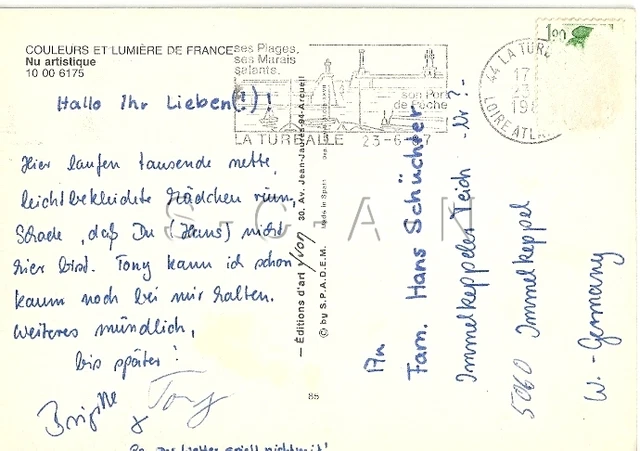 COULEURS ET LUMIÈRE DE FRANCE
Nu artistique
10 00 6175
ses Plages.
ses Marais
salants.
son Port
de Pêche
LA TURBALLE 23-6-
1,90
44 LA TURB
17
23
198
LOIRE ATLAN
Hallo Ihr Lieben(!)!
Hier laufen tausende nette,
leichtbekleidete Mädchen rum,
Schade, daß Du (Hans) nicht
hier bist. Tony kann ich schon
kaum noch bei mir halten.
Weiteres mündlich,
bis später!
Brigitte
& Tony
Ps. das Wetter spielt nicht mit!
— Éditions d'art yvon 30, Av. Jean-Jaurès-94-Arcueil
© by S.P.A.D.E.M. Made in Spain
85
S-G-A-N
An
Fam. Hans Schüchter
Immelkeppeler Teich - Nr ?-
5060 Immelkeppel
W.-Germany